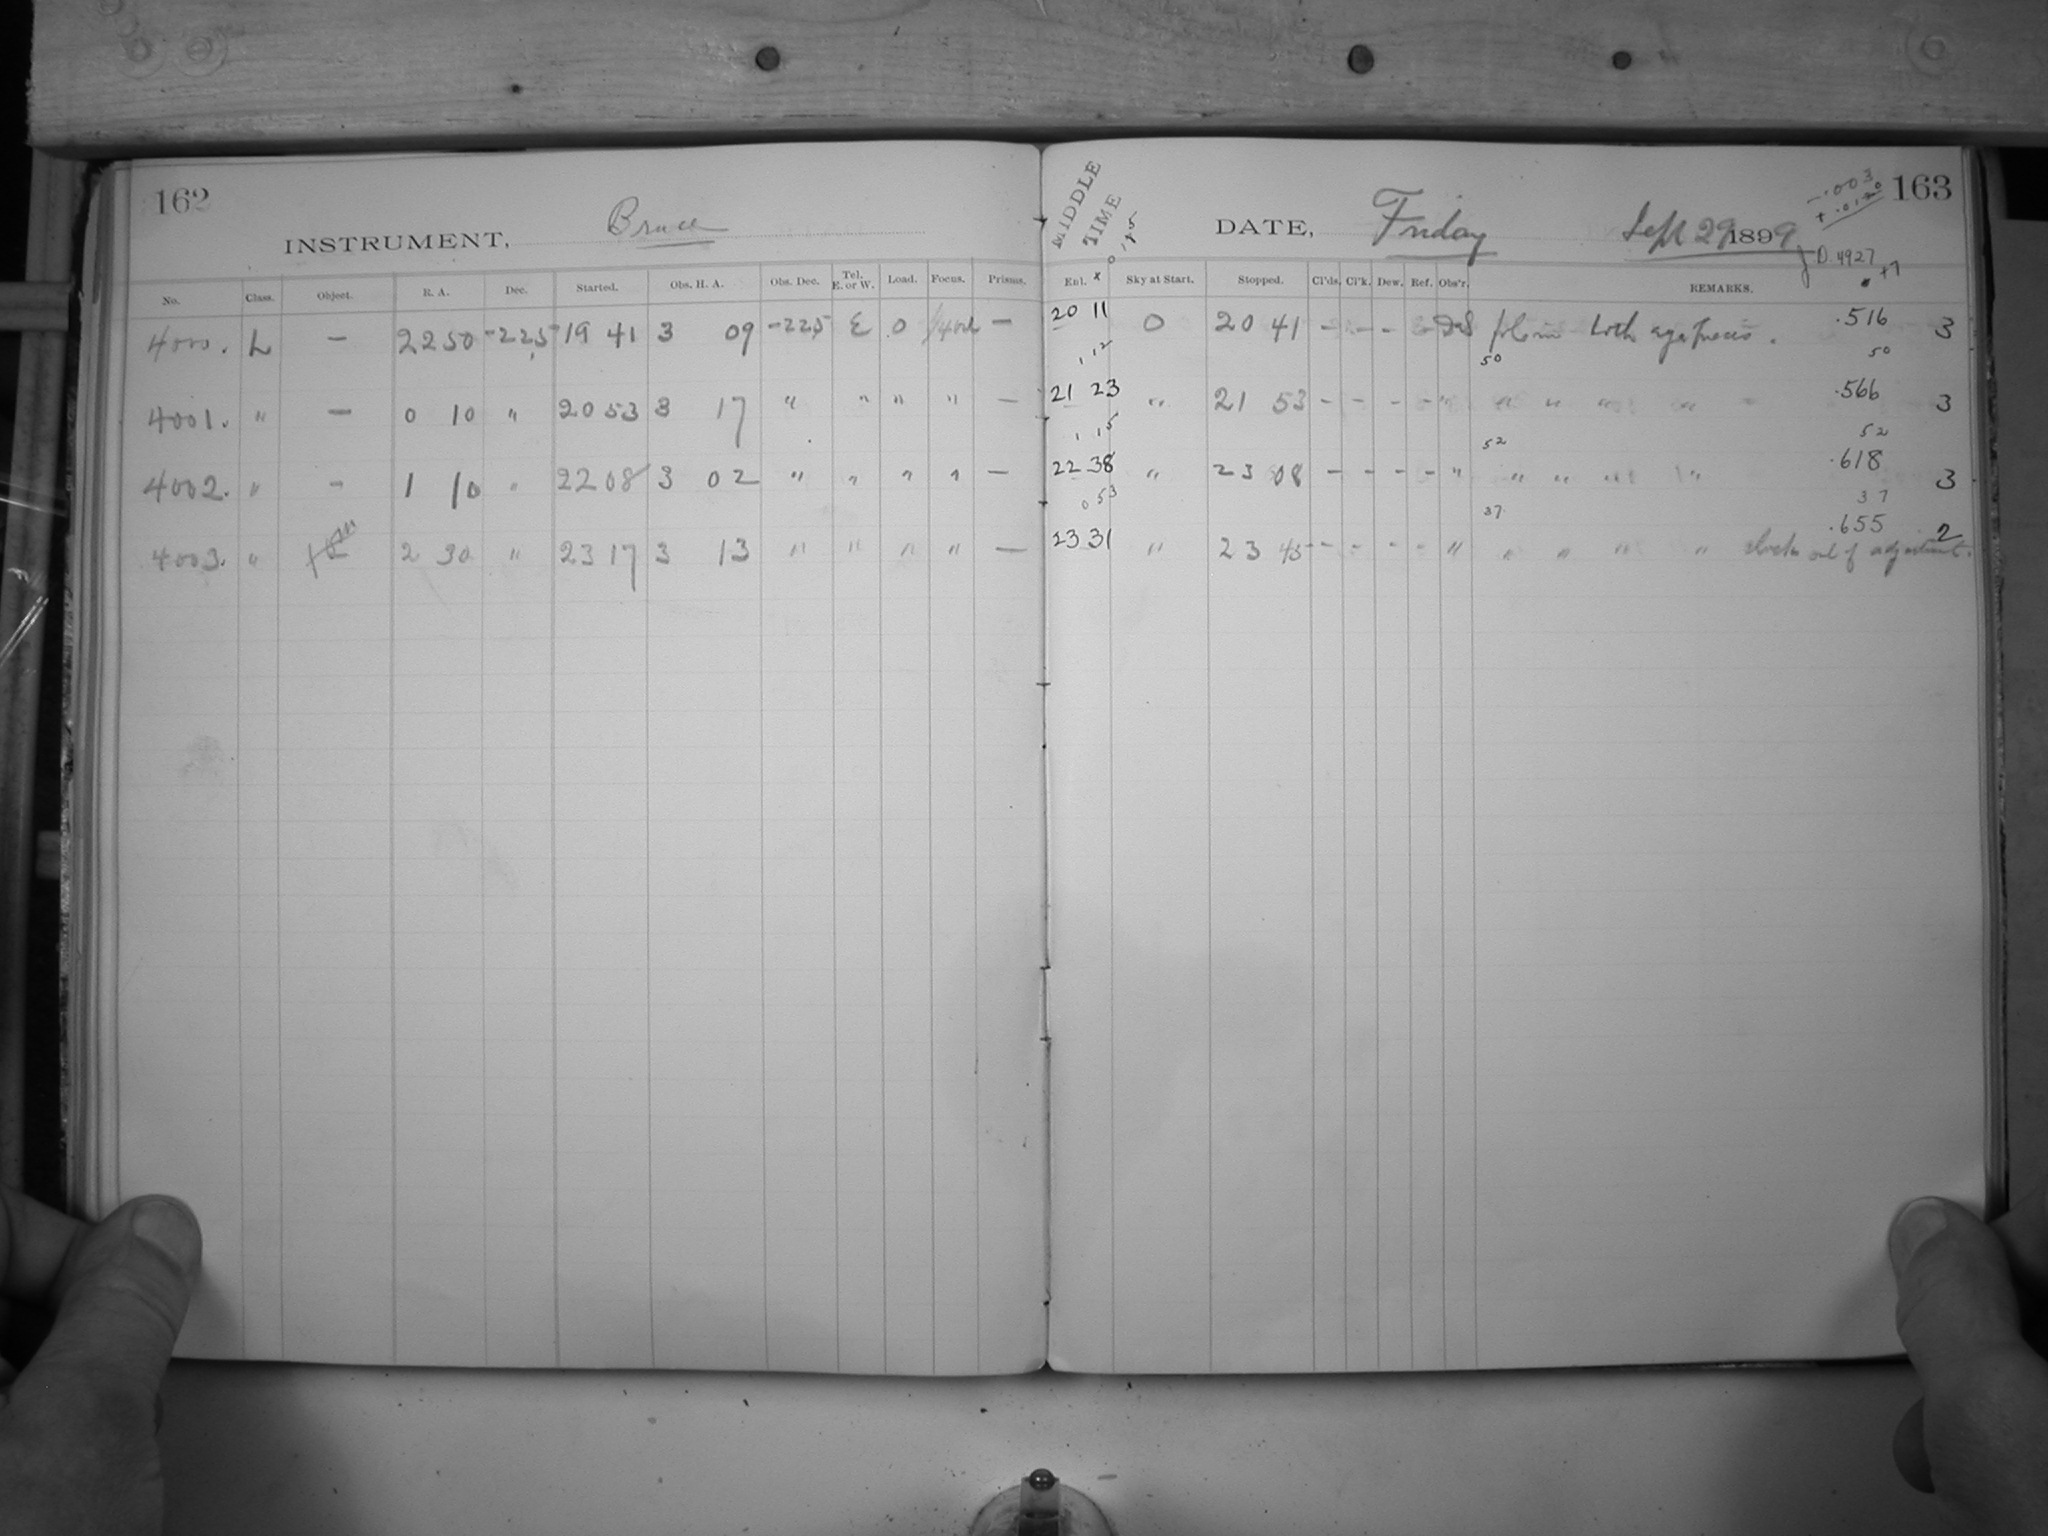 162
INSTRUMENT, Bruce
No. Class. Object. R. A. Dec. Started. Obs. H. A. Obs. Dec. Tel. E. or W. Load. Focus. Prisms.
4000. L — 22 50 -22.5 19 41 3 09 -22.5 E 0 —
4001. " — 0 10 " 20 53 3 17 " " " " —
4002. " - 1 10 " 22 08 3 02 " " " " —
4003. " 2 30 " 23 17 3 13 " " " " —
MIDDLE TIME
DATE, Friday Sept 29 1899
-.003
163
J.D. 4927
+7
Enl. x Sky at Start. Stopped. Cl'ds. Cl'k. Dew. Ref. Obs'r. REMARKS.
20 11 0 20 41 - - - - .516 3
1 12 50 50
21 23 " 21 53 - - - - " " " " " .566 3
1 15 52 52
22 38 " 23 08 - - - - " " " " " .618 3
0 53 37 37
.655 2
23 31 " 23 45 - - - - " " " " " clock out of adjustment.